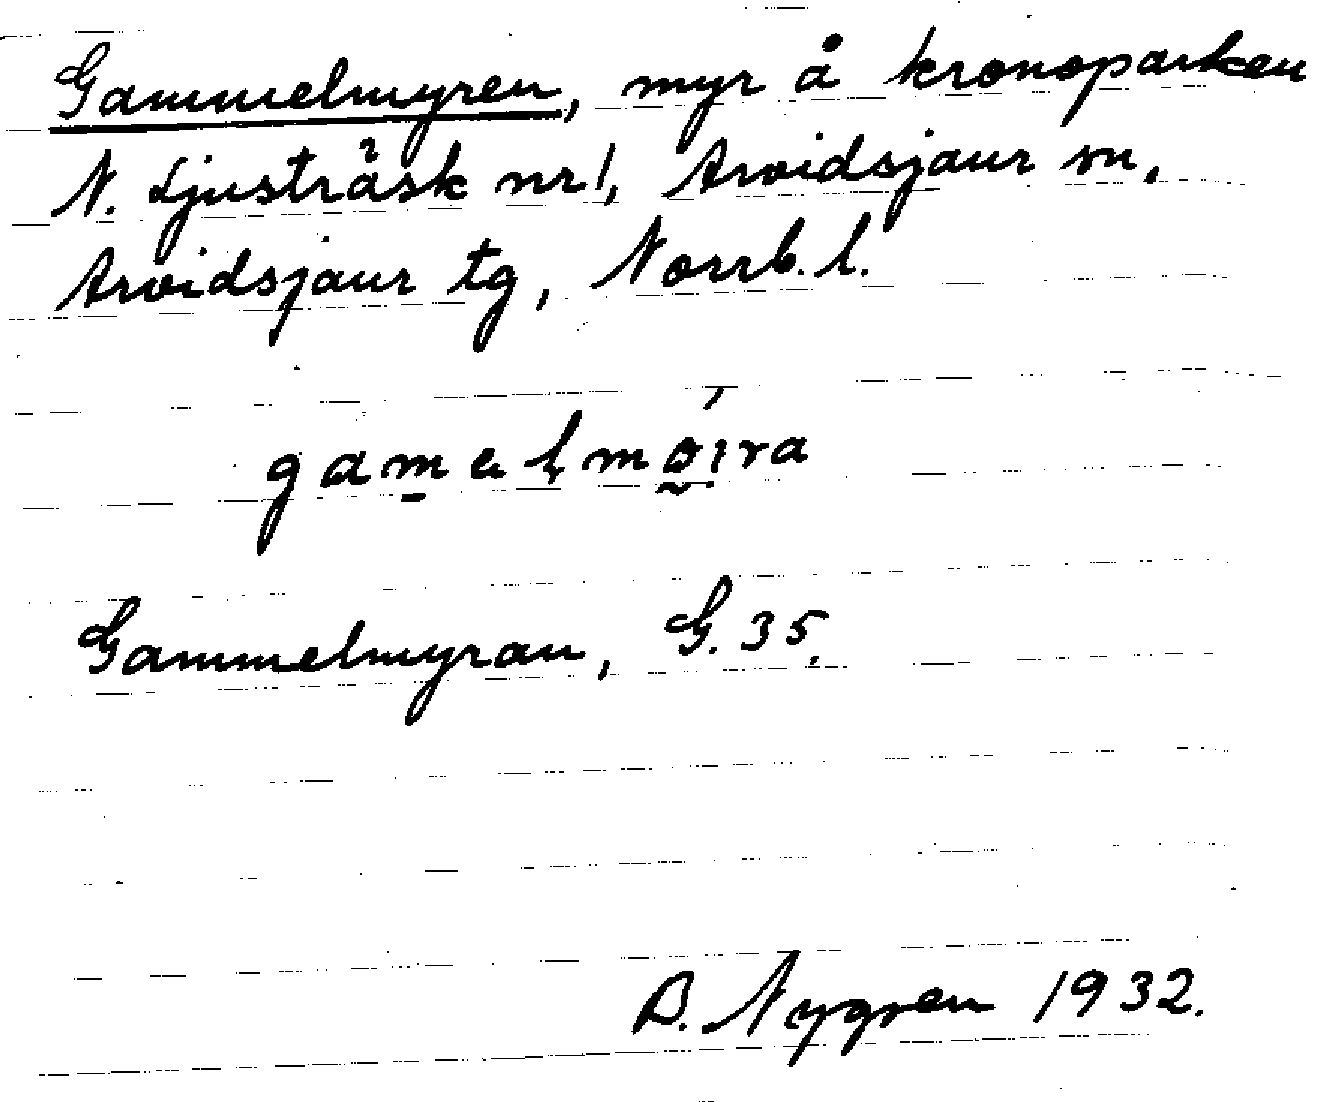 Gammelmyren, myr å kronoparken
N. Ljusträsk nr 1, Arvidsjaur sn,
Arvidsjaur tg, Norrb. l.
Gammelmyran, G. 35.
Nygren 1932.